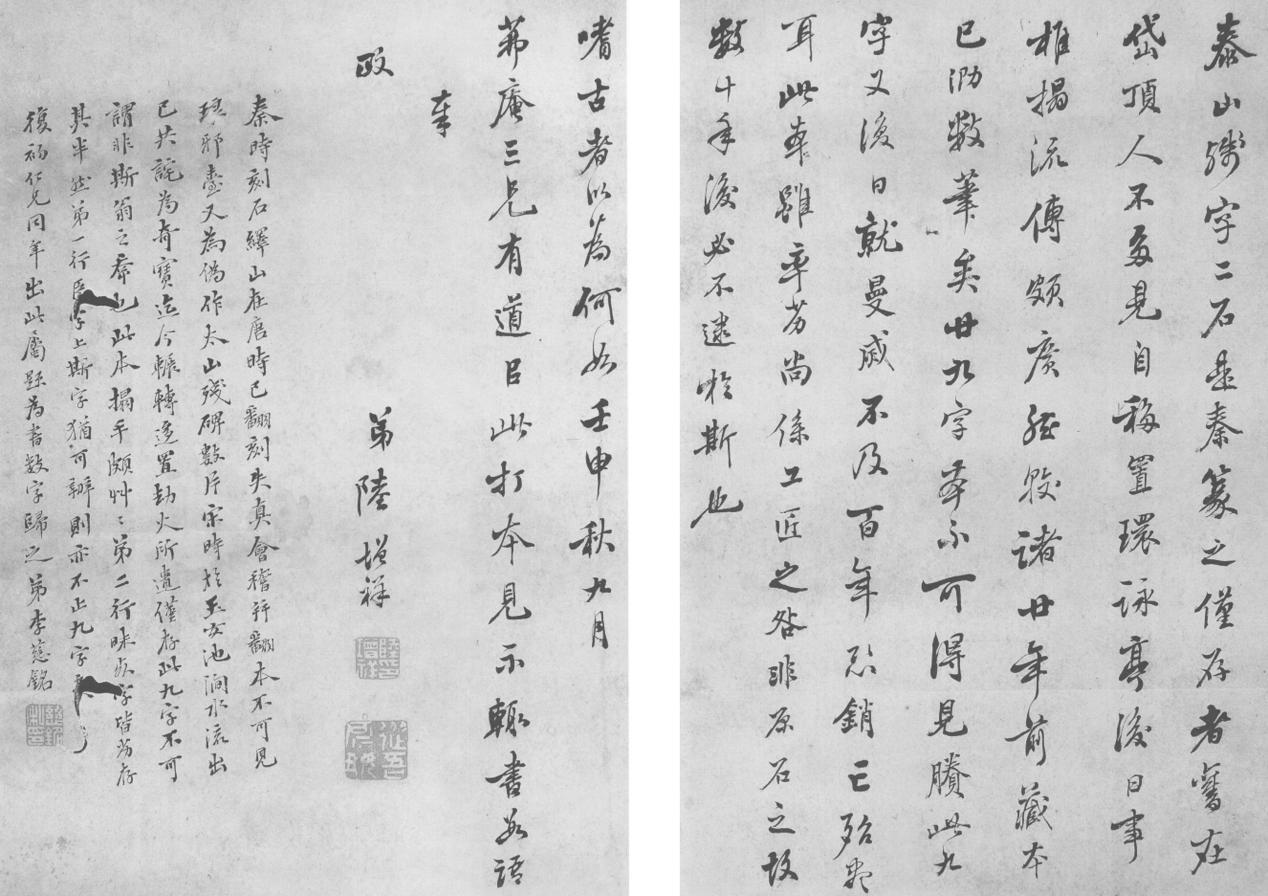 泰山殘字二石是秦篆之僅存者舊在
岱頂人不多見自移置環詠亭後日事
椎搨流傳頗廣然較諸廿年前藏本
已泐數筆矣廿九字本不可得見賸此九
字又後日就曼滅不及百年恐銷亡殆盡
耳此車雖率劣尚係工匠之咎非原石之故
数十年後必不逮於斯也
嗜古者以為何如壬申秋九月
茀庵三兄有道以此打本見示輒書數語
奉
政
弟陸增祥
秦時刻石繹山在唐時已翻刻失真會稽并翻本不可見
琅邪臺又為偽作太山殘碑數片宋時於玉女池澗水流出
已共詫為奇寶迄今輾轉遷置劫火所遺僅存此九字不可
謂非斯翁之香也此本搨手頗艸艸第二行昧死字皆為存
其半然第一行臣字上斯字猶可辦則亦不止九字
復初仁兄同年出此屬題為書数字歸之弟李慈銘